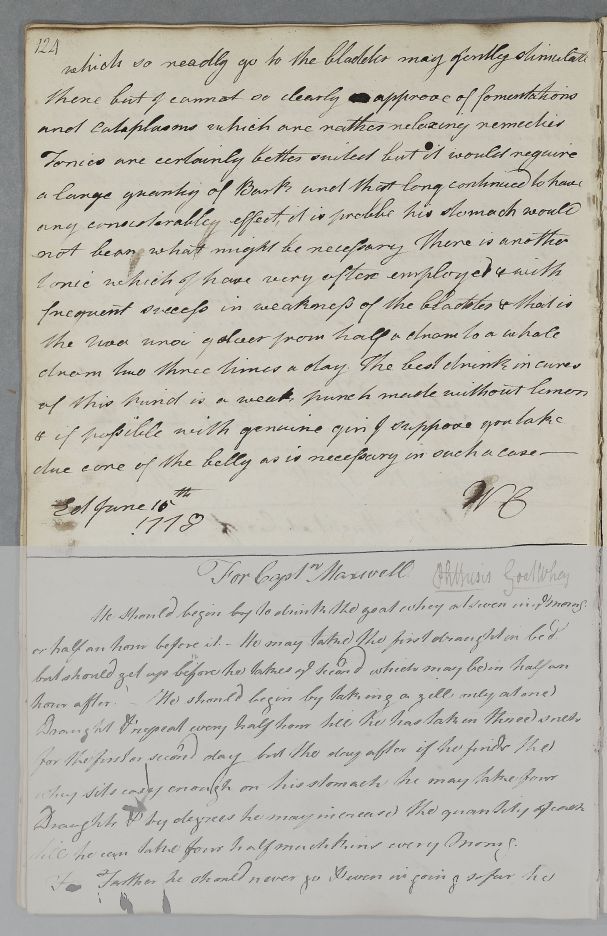 124
which so readly go to the bladder may gently stimulate
there but I cannot so clearly approve of fomentations
and Cataplasms which are rather relaxing remedies
Tonics are certainly better suited but it would require
a large quantity of Bark and that long continued to have
any considerabley effect, it is probbe his stomach would
not bear what might be necessary There is another
tonic which I have very often employed & with
frequent success in weakness of the bladder & that is
the uva ursi from half a dram to a whole
dram two three times a day. The best drink in cures
of this kind is a weak punch made without limon
& if possible with genuine gin I suppose you take
due care of the belly as is necessary in such a case
Ed June 15th
1778
WC
For Captn Maxwell Phthisis Goat Whey
He should begin by to drink the goat whey at seven in ye morng
or half an hour before it - He may take the first draught in bed
but should get up before he takes ye second which may be in half an
hour after. - He should begin by taking a gill only at one
Draught & repeat every half hour till he has taken three
for the first or second day but the day after if he finds the
whey sits easy enough on his stomach he may take four
Draughts & by degrees he may increase the quantity of each
till he can take four half mutchkins every Morng.
Farther he should never go & even in going so far he